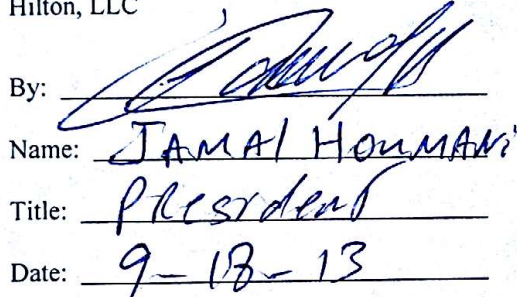 Hilton, LLC
By:
Name: JAMAl HOUMANi
Title: President
Date: 9-18-13